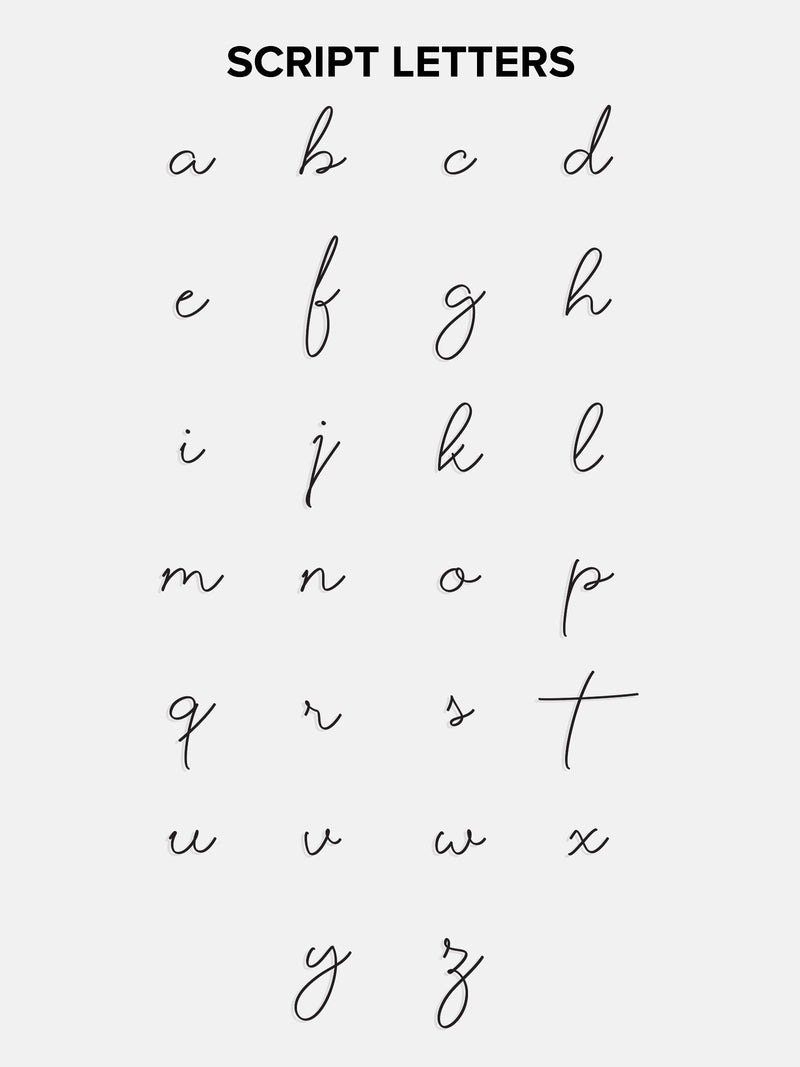 SCRIPT LETTERS
a b c d
e f g h
i j k l
m n o p
q r s t
u v w x
y z